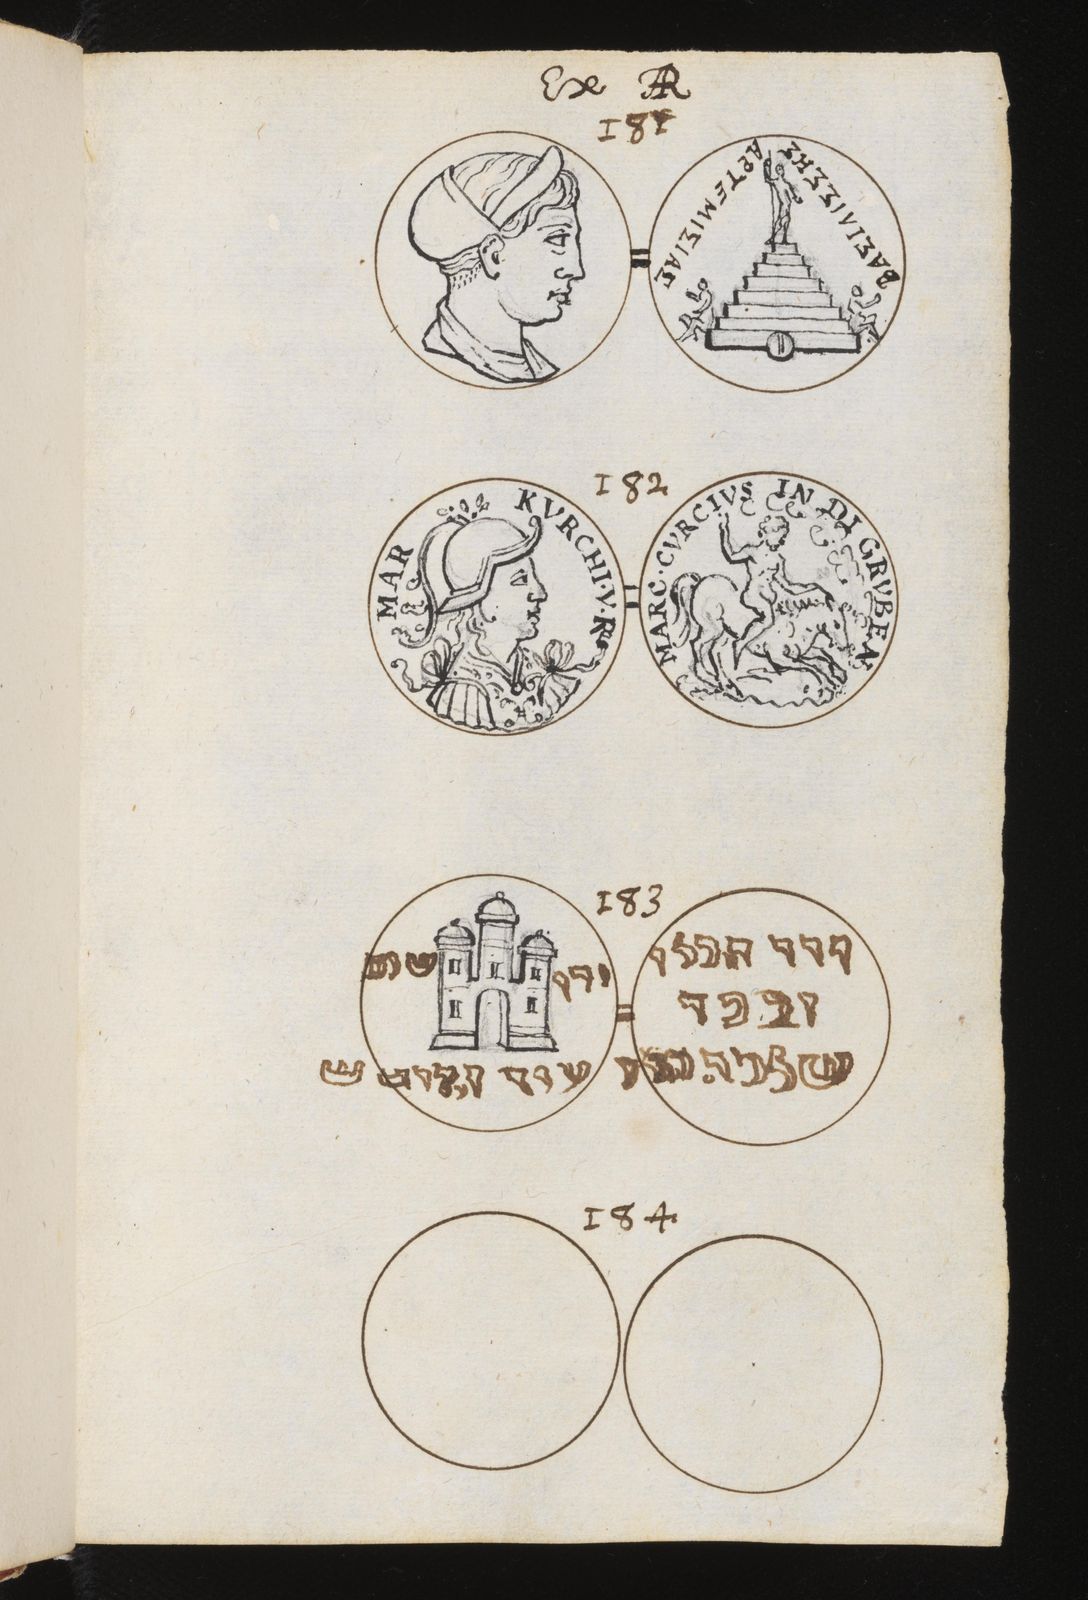 Ex AR
181
ΒΑΣΙΛΙΣΣΗΣ ΑΡΤΕΜΙΣΙΑΣ
182
MAR KVRCHI·V·R
MARC·CVRCIVS IN DI GRVBEN
183
עיר
דוד המלך
שלמה
184